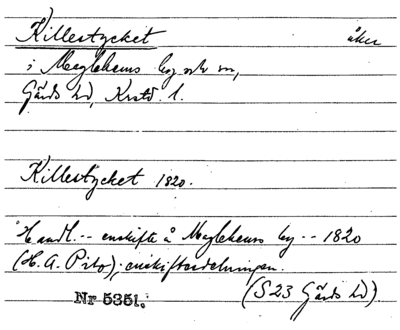 Killestycket åker
i Maglehems by och sn,
Gärds hd, Krstd. l.
Killestycket 1820.
Handl. -- enskifte å Maglehems by -- 1820
(H. A. Pihl); enskiftesdelningen.
(S 23 Gärds hd)
Nr 5351.